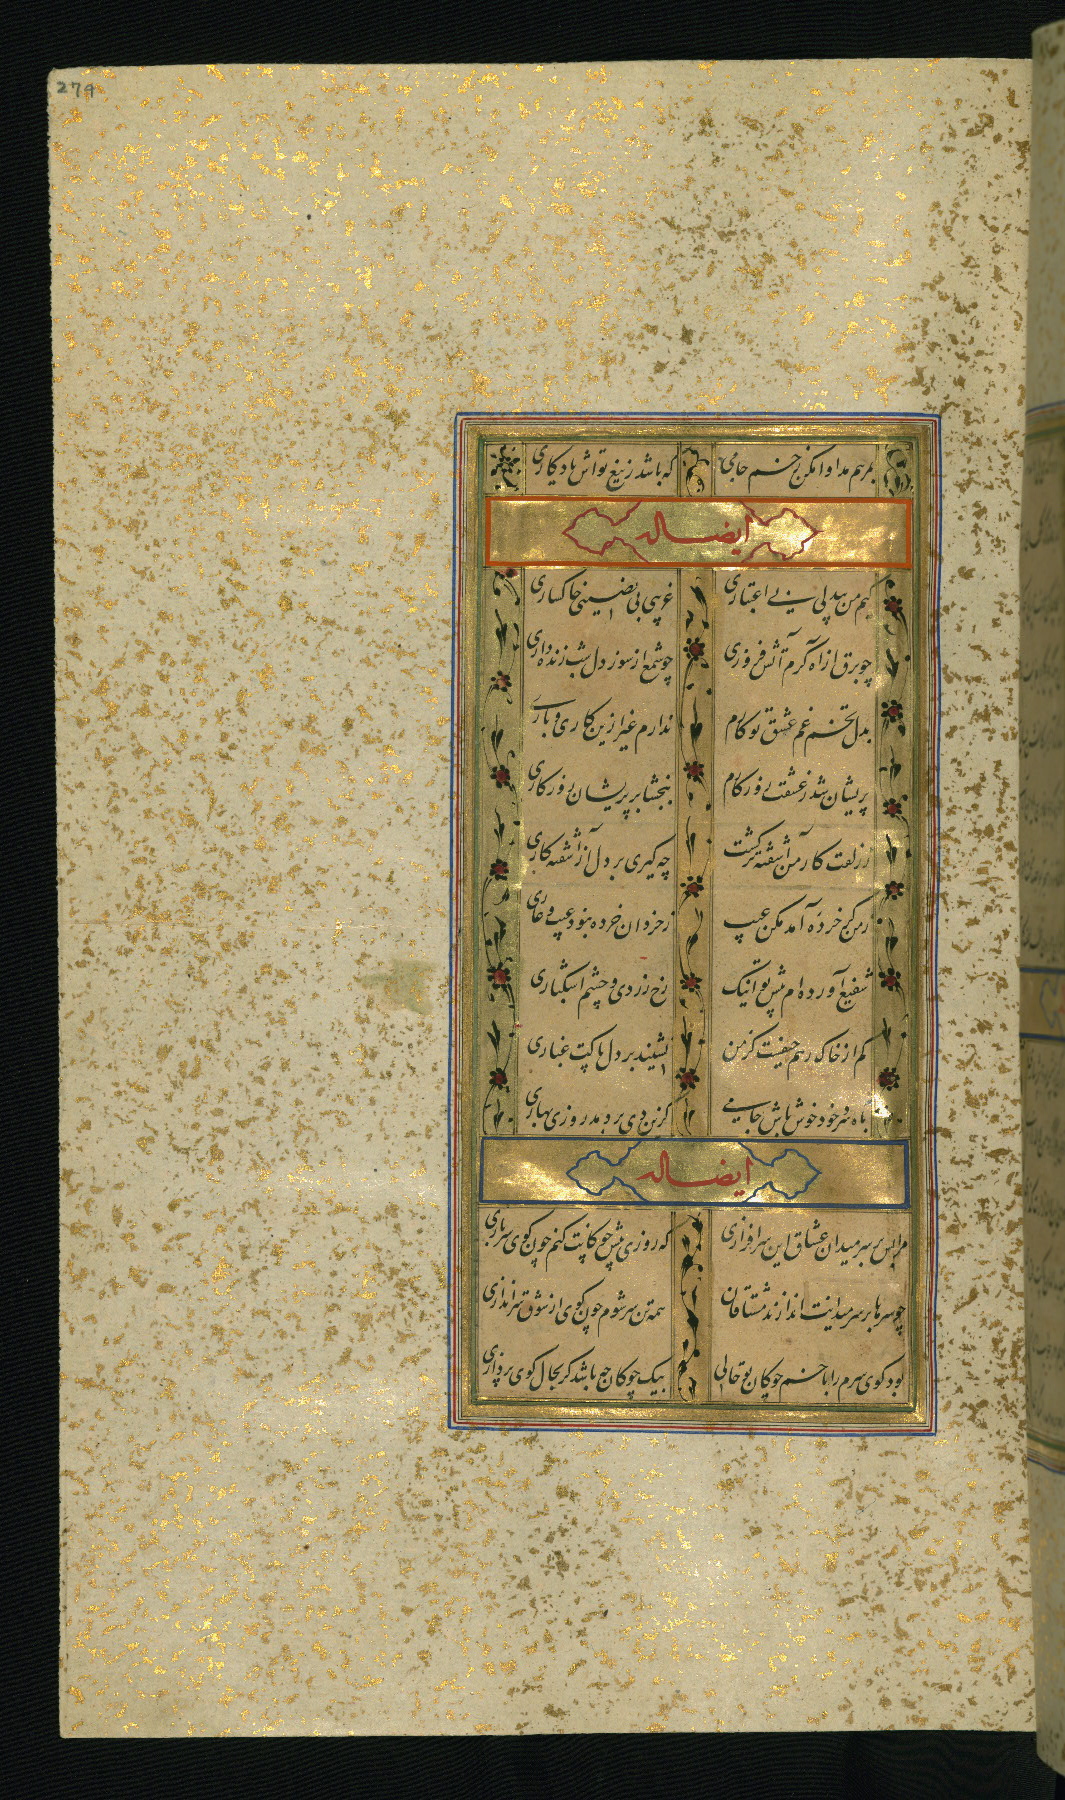 279
بمرهم مداوا مکن زخم جامی
که باشد ز تیغ تواش یادکاری
ایضاله
کیم من بیدلی بی اعتباری
غریبی بی نصیبی خاکساری
چو برق از آه کرم آتش فروزی
چو شمع از سوز دل شب زنده داری
بدل تخم غم عشق تو کارم
ندارم غیر ازین کاری و باری
پریشان شد ز عشقت روزکارم
ببخشا بر پریشان روزکاری
ز زلفت کار من آشفته تر کشت
چه کیری بر دل آشفته کاری
ز من کر خرده آمد مکن عیب
ز خردان خرده نبود عیب و عاری
شفیع آورده ام پیش تو اینک
رخ زردی و چشم اشکباری
کم از خاک رهم حیفست کز من
نشیند بر دل پاکت غباری
باه سرد خود خوش باش جامی
کزین دی بر دمد روزی بهاری
ایضاله
مرا بس بر سر میدان عشاق این سرافرازی
که روزی پیش چوکانت کنم چون کوی سربازی
چو سرها بر سر میدانت اندازند مشتاقان
همه تن سر شوم چون کوی از شوق سراندازی
بود کوی سرم را با خم چوکان تو حالی
بیک چوکان چه باشد کر بحال کوی پردازی